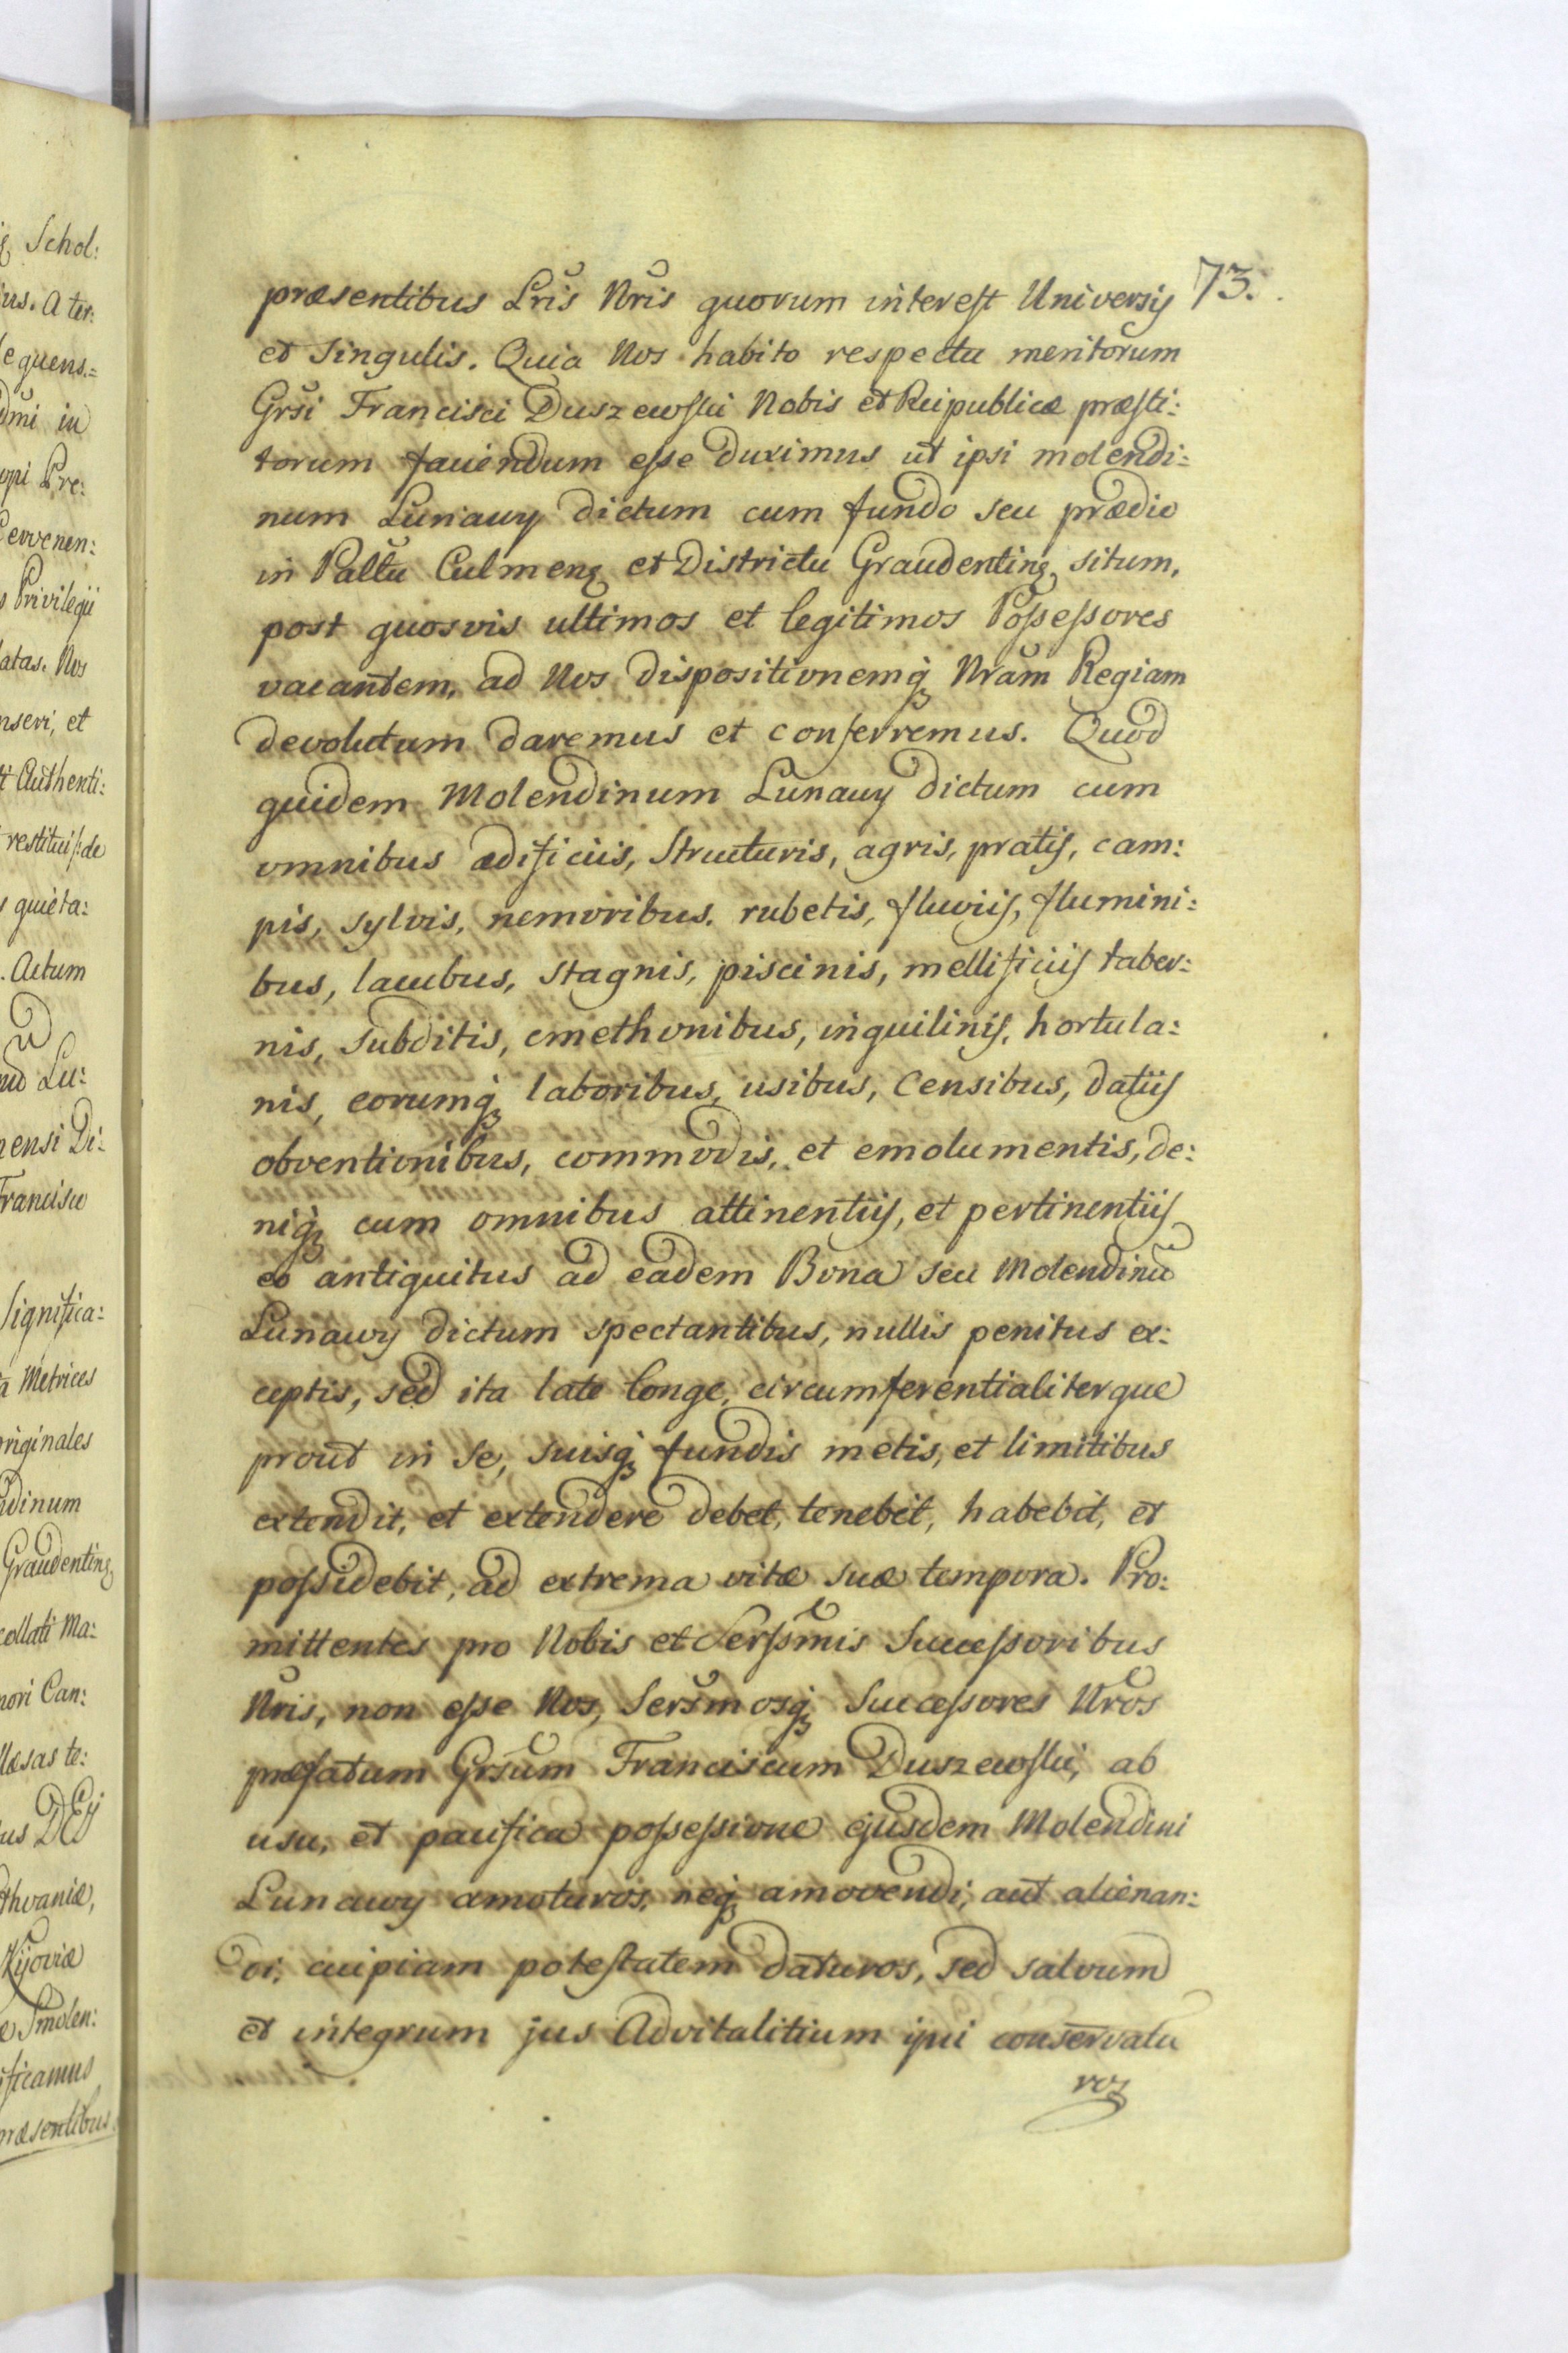 73.
præsentibus Lris Nris quorum interest Universis
et Singulis. Quia Nos habito respectu meritorum
Grsi Francisci Duszewski Nobis et Reipublicæ præsti:
torum favendum esse duximus ut ipsi molendi:
num Lunawy dictum cum fundo seu prædio
in Pallu Culmenq et Districtu Graudentinq situm,
post quosvis ultimos et legitimos Possessores
vacantem, ad Nos dispositionemq Nram Regiam
devolutum daremus et conferremus. Quod
quidem Molendinum Lunawy dictum cum
omnibus ædificiis, Structuris, agris, pratis, cam:
pis, sylvis, nemoribus, rubetis, fluviis, flumini:
bus, lacubus, stagnis, piscinis, mellificiis taber:
nis, subditis, cmethonibus, inquilinis, hortula:
nis, eorumq laboribus, usibus, Censibus, datiis
obventionibus, commodis, et emolumentis, de:
niq cum omnibus attinentiis, et pertinentiis
eo antiquitus ad eadem Bona seu Molendinū
Lunawy dictum spectantibus, nullis penitus ex:
ceptis, sed ita late longe, circumferentialiterque
prout in se, suisq fundis metis, et limitibus
extendit, et extendere debet, tenebit, habebit, et
possidebit, ad extrema vitæ suæ tempora. Pro:
mittentes pro Nobis et Serssmis Successoribus
Nris, non esse Nos, Sersmosq Successores Nros
præfatum Grsum Franciscum Duszewski, ab
usu, et pacifica possessione ejusdem Molendini
Lunawy amoturos, neq amovendi, aut alienan:
di, cuipiam potestatem daturos, sed salvum
et integrum jus Advitalitium ipsi conservatu
ros